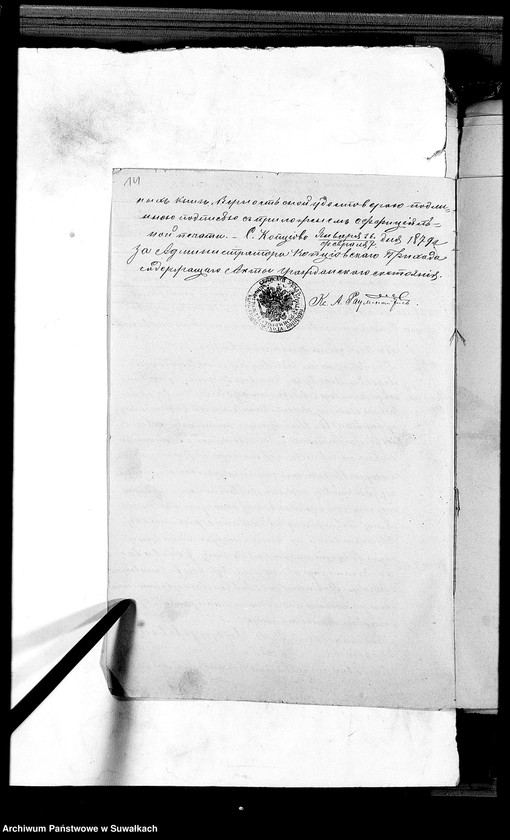 141
ныхъ книгъ. Верность сей удостоверяю подлин-
ною подписью съ приложеніемъ оффиціаль-
ной печати. – С. Копціово Января 26. дня 1879 г.
Февраля 7.
За администратора Копціовскаго Прихода
содержащаго Акты гражданскаго состоянія.
Кс. А.
Archiwum Państwowe w Suwałkach